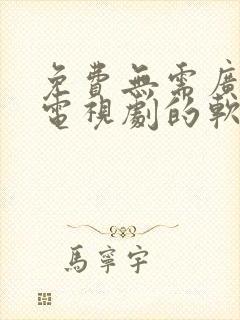 免費無需廣
電視劇的軟
馬寧宇